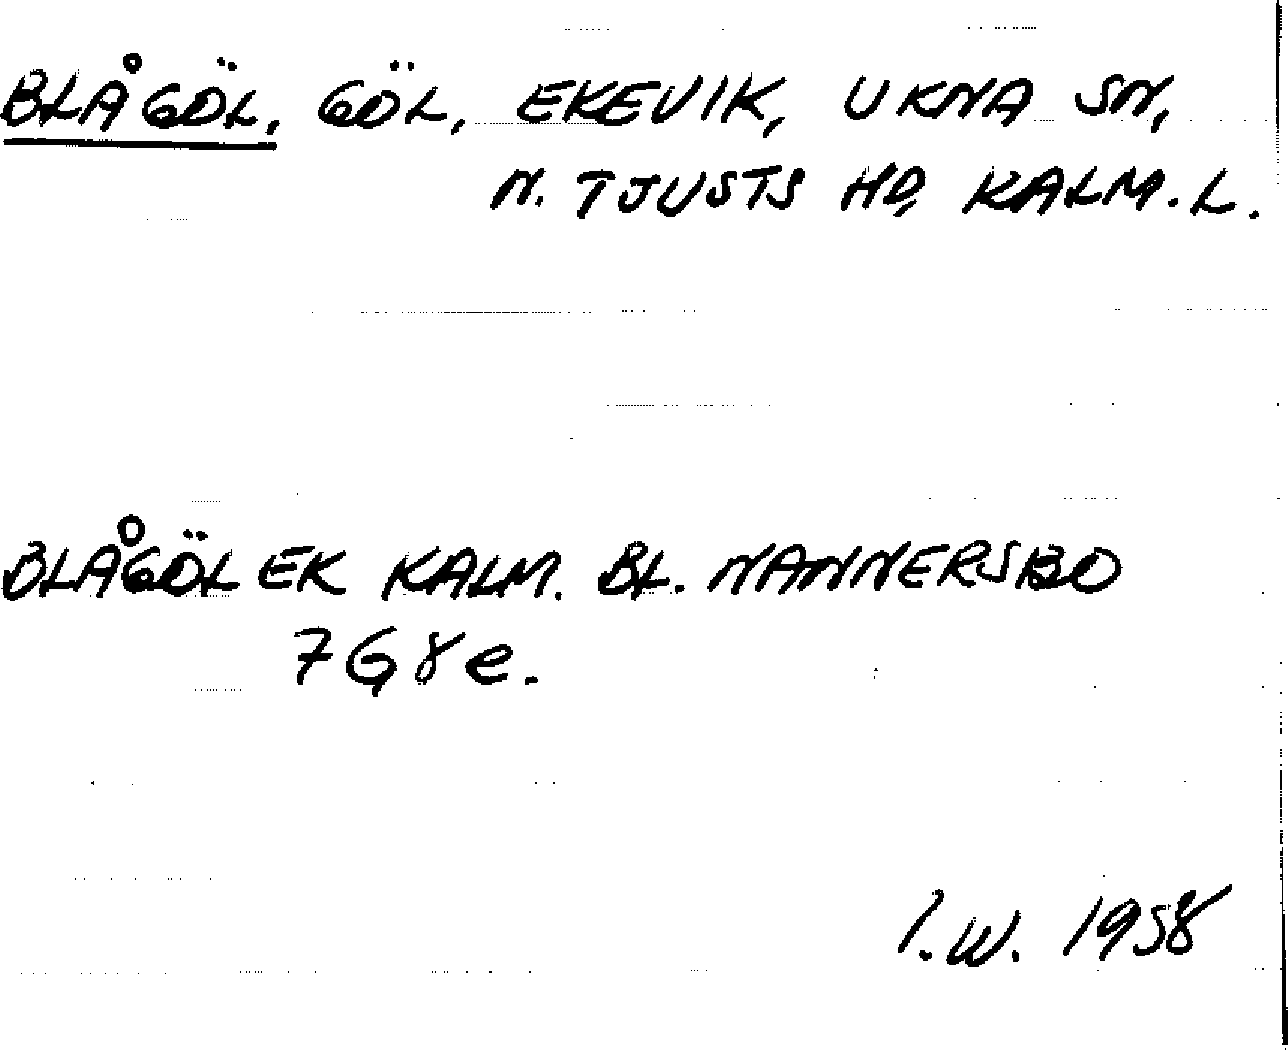 BLÅGÖL, GÖL, EKEVIK, UKNA SN,
N. TJUSTS HD, KALM. L.
BLÅGÖL EK KALM. BL. NANNERSBO
7G8e.
I.W. 1958